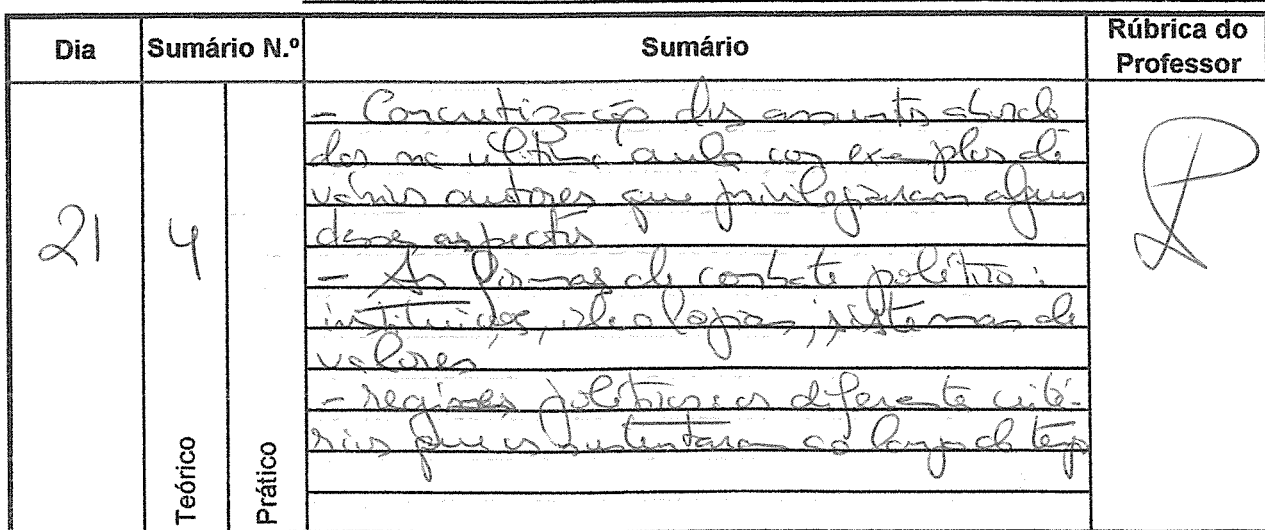 Dia Sumário N.º Sumário Rúbrica do Professor
- Concretização dos assuntos aborda
dos na última aula com exemplos de
vários autores que privilegiaram alguns
desses aspectos
21 4
- As formas de combate político:
instituições, ideologias, sistemas de
valores
- regimes políticos e os diferentes crité-
rios que os sustentaram ao longo do tempo
Teórico
Prático